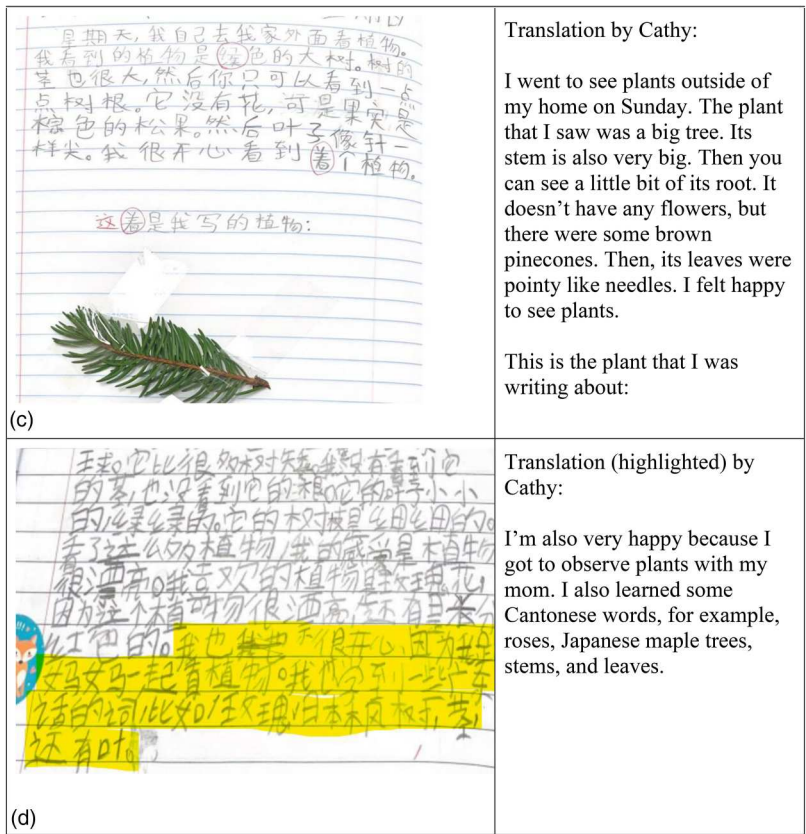 早期天,我自己去我家外面看植物。
我看到的植物是绿色的大树。树的
茎也很大,然后你只可以看到一点
点树根。它没有花,可是果实是
棕色的松果。然后叶子像针一
样尖。我很开心看到着个植物。
这着是我写的植物:
(c)
Translation by Cathy:
I went to see plants outside of
my home on Sunday. The plant
that I saw was a big tree. Its
stem is also very big. Then you
can see a little bit of its root. It
doesn't have any flowers, but
there were some brown
pinecones. Then, its leaves were
pointy like needles. I felt happy
to see plants.
This is the plant that I was
writing about:
它比很多树矮。我没有看到它
的茎,也没看到它的根。它的芽小小
的,绿绿的。它的树枝是细细的。
看了这么多植物,我的感觉是植物
很漂亮。我喜欢的植物是玫瑰花,
因为这个植物很漂亮,还有是
红色的。我也很开心,因为我是
妈妈一起看植物。我也学到一些
话的词,比如,玫瑰,日本枫树,茎,
还有叶。
(d)
Translation (highlighted) by
Cathy:
I'm also very happy because I
got to observe plants with my
mom. I also learned some
Cantonese words, for example,
roses, Japanese maple trees,
stems, and leaves.